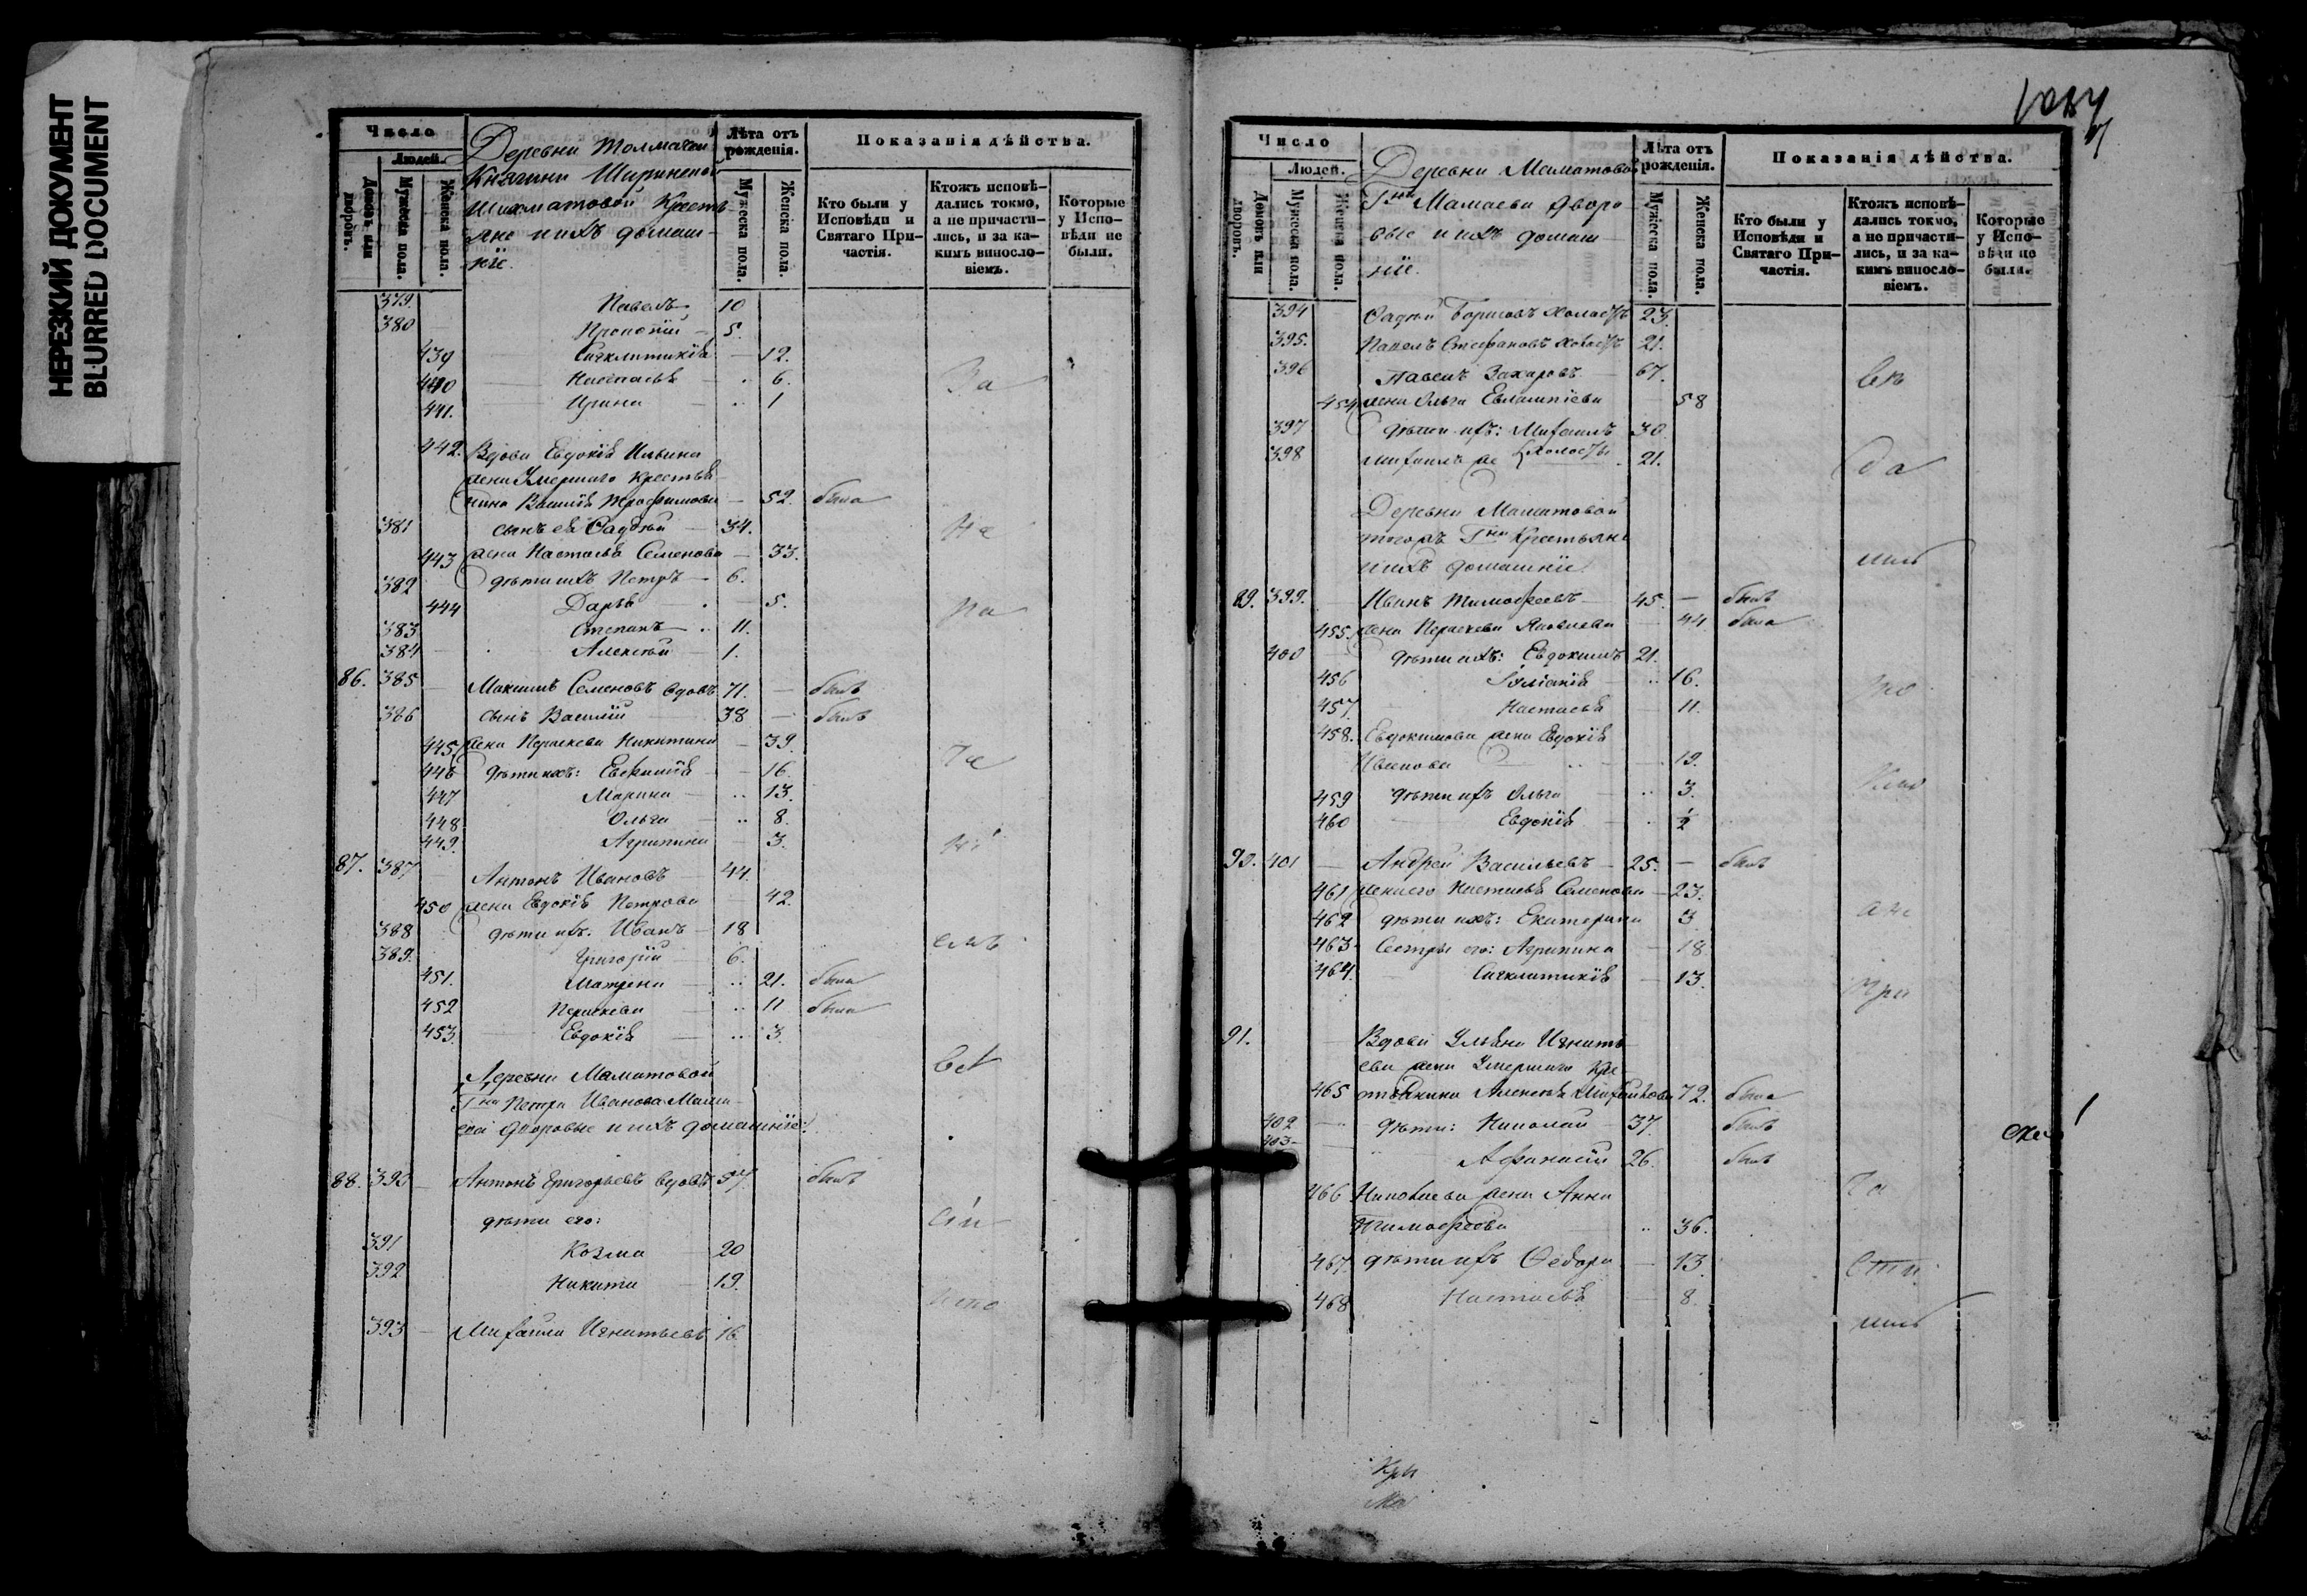 НЕРЕЗКИЙ ДОКУМЕНТ
BLURRED DOCUMENT
Число
Людей.
Домовъ или дворовъ.
Мужеска пола.
Женска пола.
Деревни Толмачей
Княгини Ширинской
Шихматовой Кресть-
яне и ихъ домаш-
нiе.
Лѣта отъ рожденiя.
Мужеска пола.
Женска пола.
Показанiя дѣйства.
Кто были у Исповѣди и Святаго При-частiя.
Ктожъ исповѣ-дались токмо, а не причасти-лись, и за ка-кимъ винословiемъ.
Которые у Испо-вѣди не были.
379. Павелъ 10
380 Прокопiй 5.
439 Сигклитикiя 12.
440 Настасья 6. За
441. Ирина 1
442. Вдова Евдокiя Ильина
жена Умершаго Крестья-
нина Василiя Трофимова 52. была
381 сынъ ея Фадѣй 34. Не
443 жена Настасья Семенова 33.
382 дѣти ихъ Петръ 6.
444 Дарья 5. На
383 Степанъ 11.
384 Алексѣй 1.
86. 385 Максимъ Семеновъ вдовъ 71. былъ
386 сынъ Василiй 38 былъ
445 жена Параскева Никитина 39.
446 дѣти ихъ: Евфимiя 16.
447 Марина 13.
448 Ольга 8.
449. Агрипина 3.
87. 387 Антонъ Ивановъ 44.
450 жена Евдокiя Петрова 42.
388 дѣти ихъ: Иванъ 18
389. Григорiй 6. емъ
451. Матрена 21. была
452 Параскева 11 была
453. Евдокiя 3.
Деревни Маматовой
Гна Петра Иванова Мама-
ева дворовые и ихъ домашнiе:
88. 390 Антонъ Григорьевъ вдовъ 57. былъ
дѣти его:
391 Козма 20
392 Никита 19.
393 Михайла Игнатьевъ 16.
Число
Людей.
Домовъ или дворовъ.
Мужеска пола.
Женска пола.
Деревни Маматовой
Гна Мамаева дворо-
вые и ихъ домаш-
нiе.
Лѣта отъ рожденiя.
Мужеска пола.
Женска пола.
Показанiя дѣйства.
Кто были у Исповѣди и Святаго При-частiя.
Ктожъ исповѣ-дались токмо, а не причасти-лись, и за ка-кимъ винословiемъ.
Которые у Испо-вѣди не были.
394 Фадѣй Борисовъ холостъ 23.
395. Павелъ Стефановъ холостъ 21.
396 Павелъ Захаровъ 67.
454 жена Ольга Евлампiева 58
397 дѣти ихъ: Михаилъ 30
398 Михаилъ же холосты 21.
Деревни Маматовой
тогожъ Гна Крестьяне
и ихъ домашнiе.
89. 399. Иванъ Тимофеевъ 45. былъ
455. жена Параскева Яковлева 44 была
400 дѣти ихъ: Евдокимъ 21.
456 Iулiанiя 16.
457. Настасья 11.
458. Евдокимова жена Евдокiя
Иванова 19.
459 дѣти ихъ Ольга 3.
460 Евдокiя 1/2
90. 401 Андрей Васильевъ 25. былъ
461 жена его Настасья Семенова 23.
462 дѣти ихъ: Екатерина 3
463 Сестры его: Агрипина 18
464. Сигклитикiя 13.
91. Вдова Ульяна Игнать-
ева жена Умершаго Кре-
465 стьянина Алексѣя Михайлова 72. была
402 дѣти: Николай 37. былъ
403 Афанасiй 26. былъ
466 Николаева жена Анна
Тимофеева 36.
467. дѣти ихъ Федора 13.
468 Настасья 8.